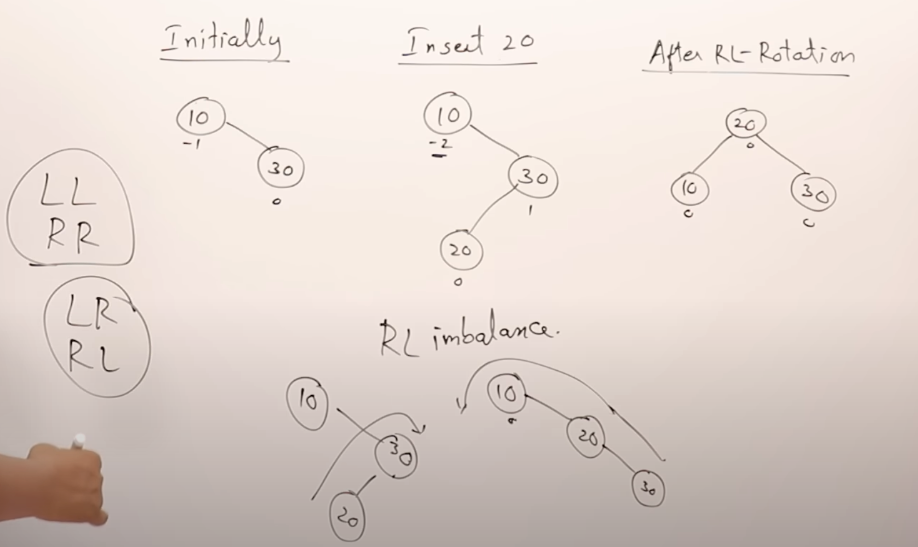 Initially
10
-1
30
0
Insert 20
10
-2
30
1
20
0
After RL-Rotation
20
0
10
0
30
0
LL
RR
LR
RL
RL imbalance.
10
30
20
10
20
30